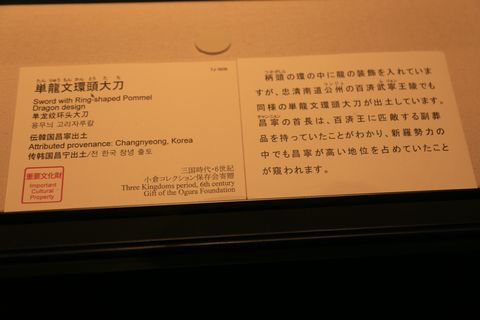 TJ-5056
たん りゅう もん かん とう た ち
単龍文環頭大刀
Sword with Ring-shaped Pommel
Dragon design
单龙纹环头大刀
용무늬 고리자루칼
伝韓国昌寧出土
Attributed provenance: Changnyeong, Korea
传韩国昌宁出土/전 한국 창녕 출토
重要文化財
Important
Cultural
Property
三国時代・6世紀
小倉コレクション保存会寄贈
Three Kingdoms period, 6th century
Gift of the Ogura Foundation
柄頭の環の中に龍の装飾を入れていま
すが、忠清南道公州の百済武寧王陵でも
同様の単龍文環頭大刀が出土しています。
昌寧の首長は、百済王に匹敵する副葬
品を持っていたことがわかり、新羅勢力の
中でも昌寧が高い地位を占めていたこと
が窺われます。